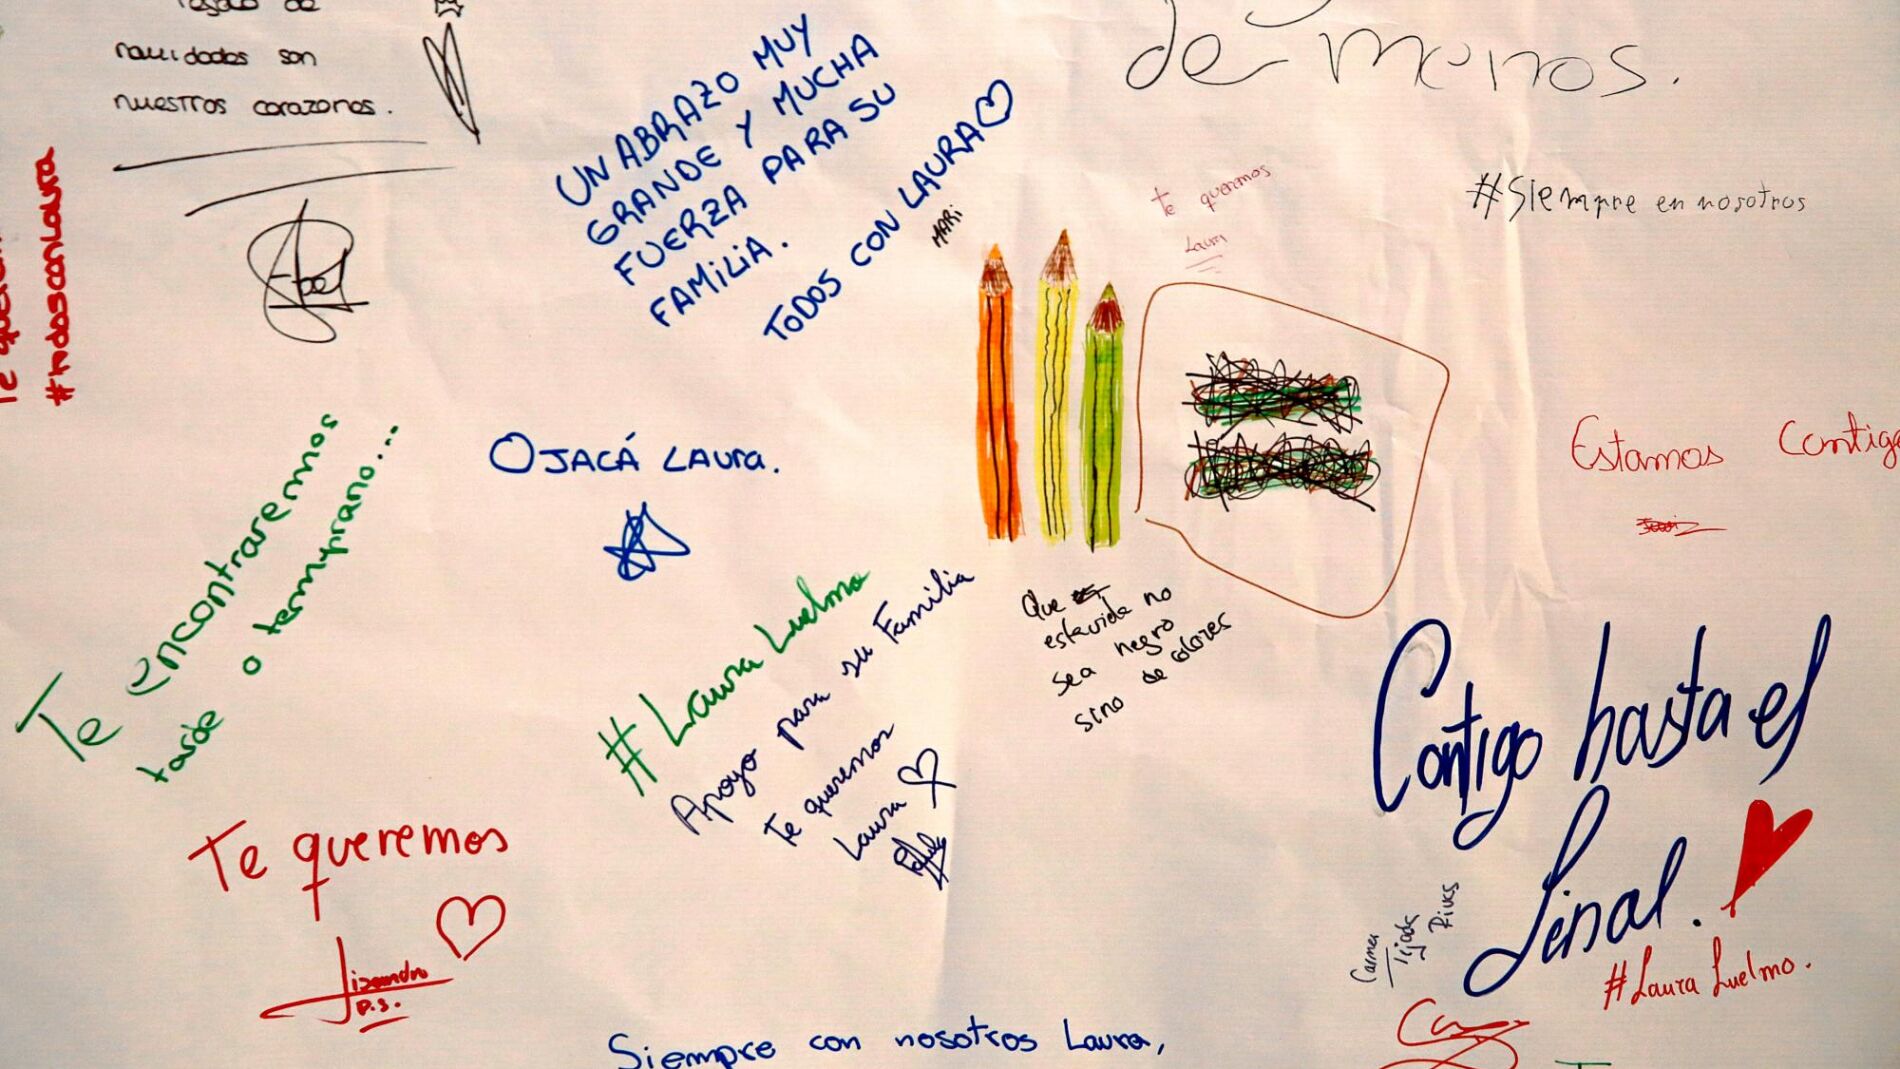 de
navidades son
nuestros corazones.
Abel
#todosconLaura
Te
UN ABRAZO MUY
GRANDE Y MUCHA
FUERZA PARA SU
FAMILIA.
TODOS CON LAURA
MARI
de menos.
Te queremos
Laura
#Siempre en nosotros
Estamos Contigo
OJACÁ LAURA.
Te encontraremos
tarde o temprano...
# Laura Luelmo
Apoyo para su Familia
Te queremos
Laura
Que
esta vida no
sea negro
sino de colores
Contigo hasta el
final.
#Laura Luelmo.
Carmen
Tejada
Rivas
Te queremos
Lizandro
P.S.
Siempre con nosotros Laura,